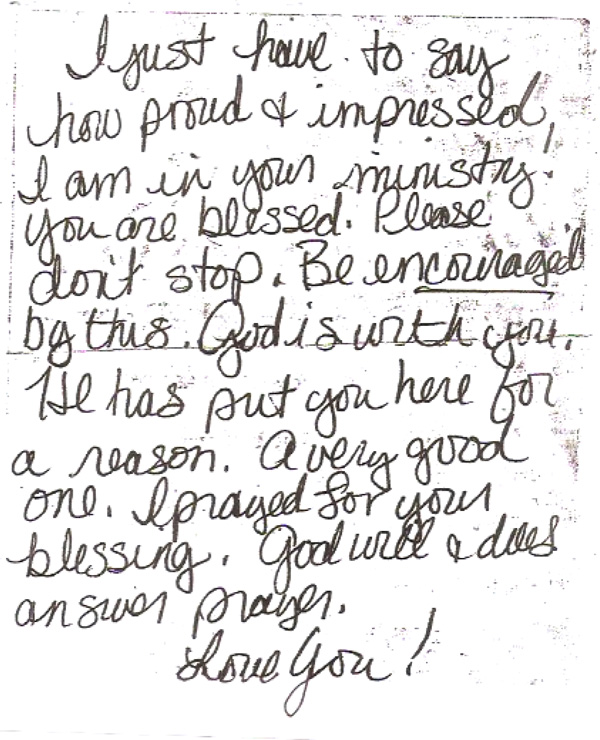 I just have to say
how proud & impressed,
I am in your ministry.
You are blessed. Please
don't stop. Be encouraged
by this. God is with you.
He has put you here for
a reason. A very good
one. I prayed for your
blessing. God will & does
answer prayer.
Love You!